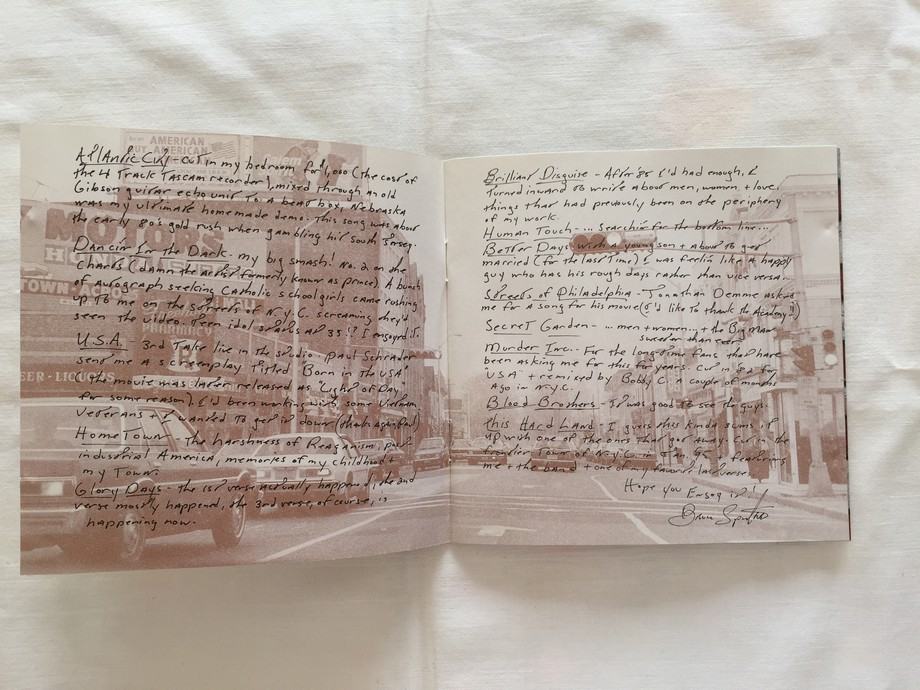 AMERICAN
BUY AMERICAN
MOTORS
TOWN
PHARMACY
BEER - LIQUORS
Atlantic City - cut in my bedroom for $1,000 (the cost of
the 4 Track Tascam recorder), mixed through an old
Gibson guitar echo unit to a beat box, Nebraska
was my ultimate homemade demo. This song was about
the early 80's gold rush when gambling hit south Jersey.
Dancin In the Dark - my big smash! No. 2 on the
charts (damn the artist formerly known as prince). A bunch
of autograph seeking Catholic schoolgirls came rushing
up to me on the streets of N.Y.C. screaming they'd
seen the video. Teen idol status at 35!? I enjoyed it.
U.S.A. - 3rd Take live in the studio. Paul Schrader
sent me a screenplay titled "Born in the USA"
(the movie was later released as "Light of Day"
for some reason). I'd been working with some Vietnam
Veterans + I wanted to get it down (thank again Paul)
HomeTown - the harshness of Reaganism, post
industrial America, memories of my childhood +
my Town.
Glory Days - the 1st verse actually happened, the 2nd
verse mostly happened, the 3rd verse, of course, is
happening now.
Brilliant Disguise - After '85 I'd had enough, I
turned inward to write about men, women, + love,
things that had previously been on the periphery
of my work.
Human Touch - ... Searchin' for the bottom line...
Better Days - with a young son + about to get
married (for the last Time) I was feelin like a happy
guy who has his rough days rather than vice versa.
Streets of Philadelphia - Jonathan Demme asked
me for a song for his movie (I'd like to thank the Academy!!)
Secret Garden - ... men + women... + the Big Man
sweeter than ever
Murder Inc. - For the long time fans that have
been asking me for this for years. Cut in '82 for
"USA" + remixed by Bobby C. a couple of months
Ago in N.Y.C.
Blood Brothers - It was good to see the guys.
This Hard Land - I guess this kinda sums it
up with one of the ones that got away. Cut in the
frontier Town of N.Y.C. in Jan. 95 + featuring
me + the band + one of my favorite last verses.
Hope you Enjoy it!!
Bruce Springsteen